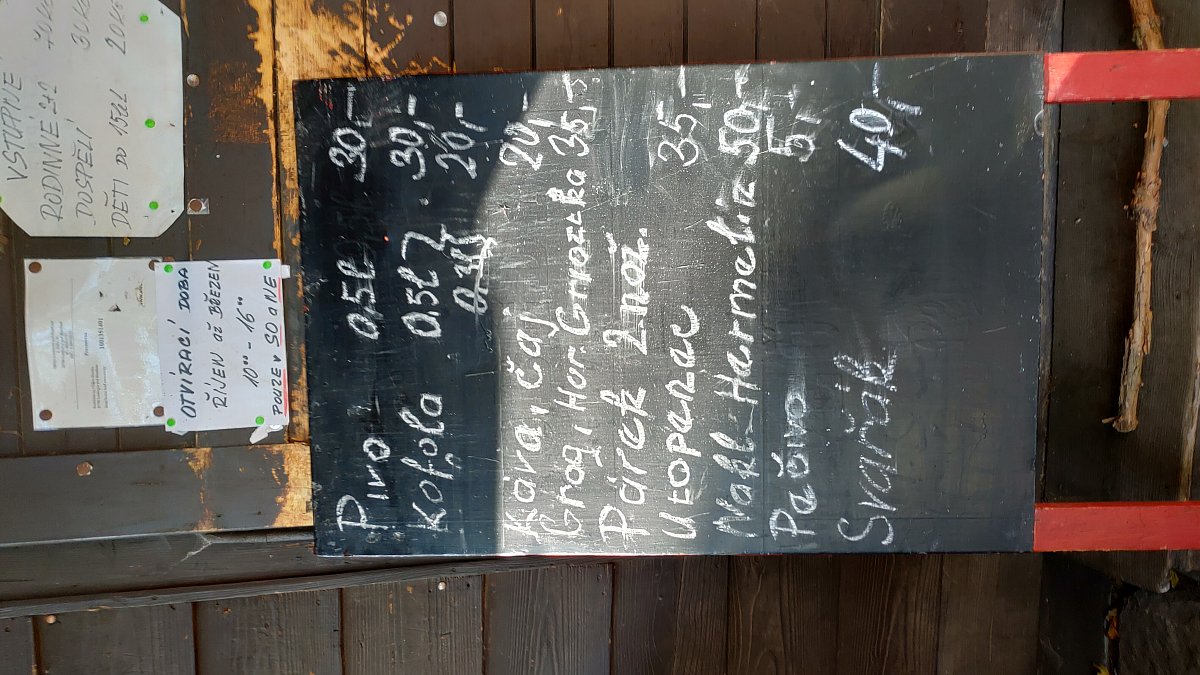 VSTUPNÉ
RODINNÉ 2+2 70Kč
DOSPĚLÍ 30Kč
DĚTI DO 15let 20Kč
OTVÍRACÍ DOBA
ŘÍJEN až BŘEZEN
10°° - 16°°
POUZE V SO a NE
Pivo 0,5l 30,-
Kofola 0.5l 30,-
0.3l 20,-
Káva, Čaj 20,-
Grog, Hor. 35,-
Párek 2 nož.
Utopenec 35,-
Nakl. Harmelín 50,-
Pečivo 5,-
Svařák 40,-